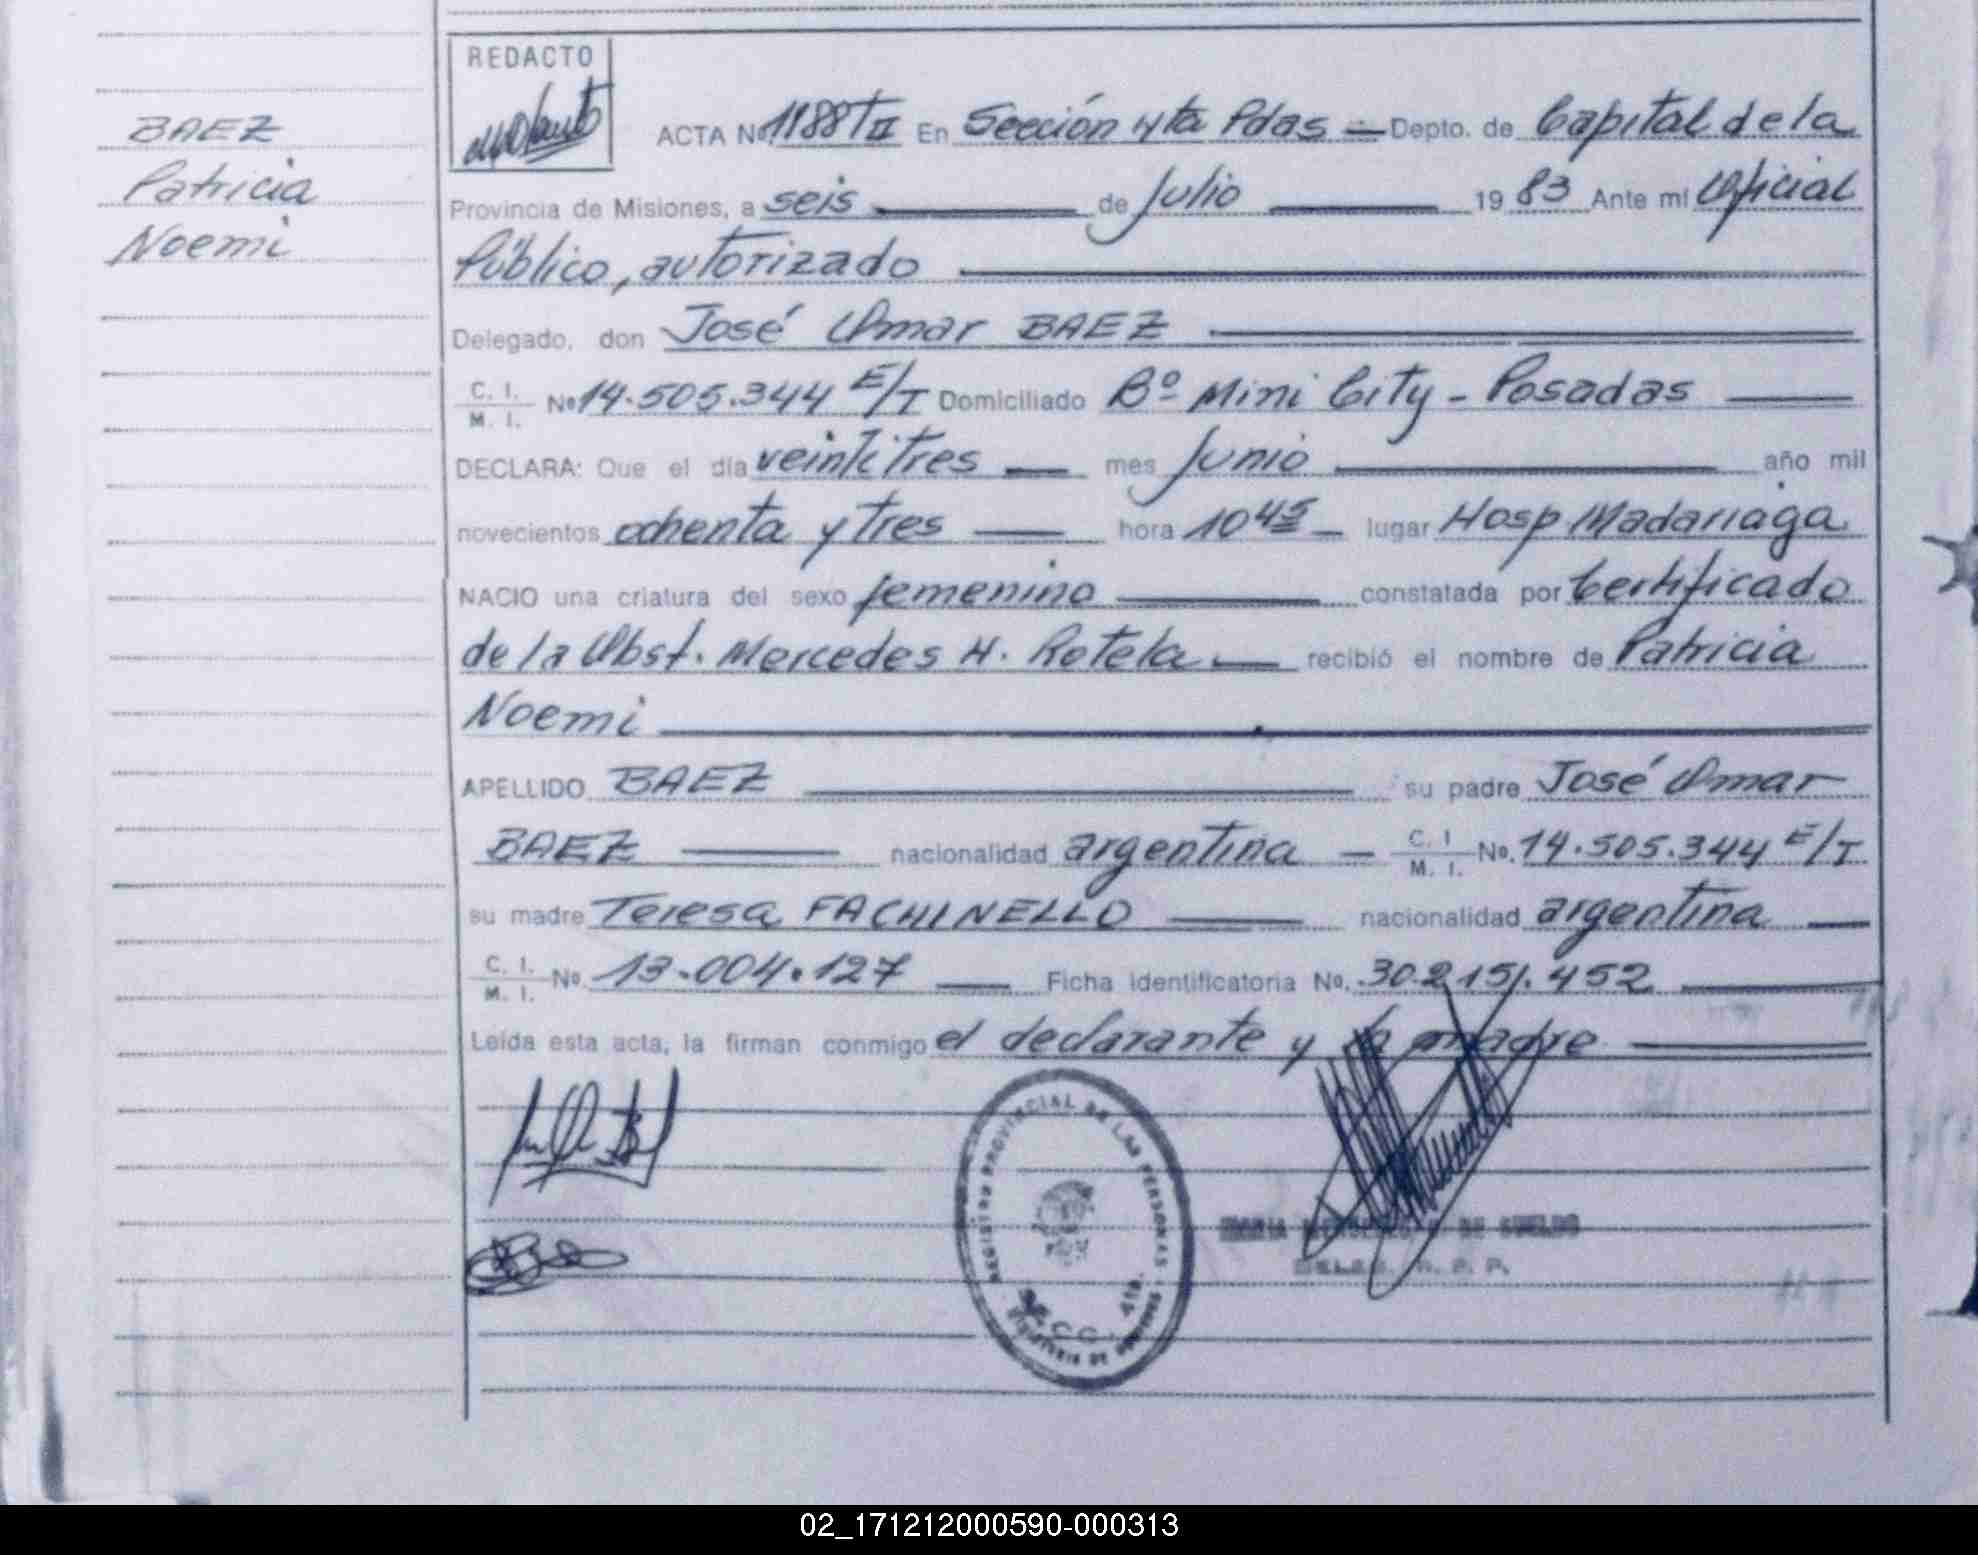 REDACTO
BAEZ
Patricia
Noemi
ACTA No 1188 T II En Sección 4ta Pdas - Depto. de Capital de la
Provincia de Misiones, a seis de Julio 19 83 Ante mi Oficial
Público, autorizado
Delegado, don José Omar BAEZ
C. I. / M. I. No 14.505.344 E/T Domiciliado Bº Mini City - Posadas
DECLARA: Que el día veintitres mes Junio año mil
novecientos ochenta y tres hora 10 45 lugar Hosp Madariaga
NACIO una criatura del sexo femenino constatada por Certificado
de la Obst. Mercedes H. Rotela recibió el nombre de Patricia
Noemi
APELLIDO BAEZ su padre José Omar
BAEZ nacionalidad argentina - C. I / M. I. No. 14.505.344 E/T
su madre Teresa FACHINELLO nacionalidad argentina
C. I. / M. I. No. 13.004.127 Ficha Identificatoria No. 30.215.452
Leída esta acta, la firman conmigo el declarante y la madre
REGISTRO PROVINCIAL DE LAS PERSONAS
SECC. 4ta.
DE SUELDO
DELEG. R. P. P.
02_171212000590-000313